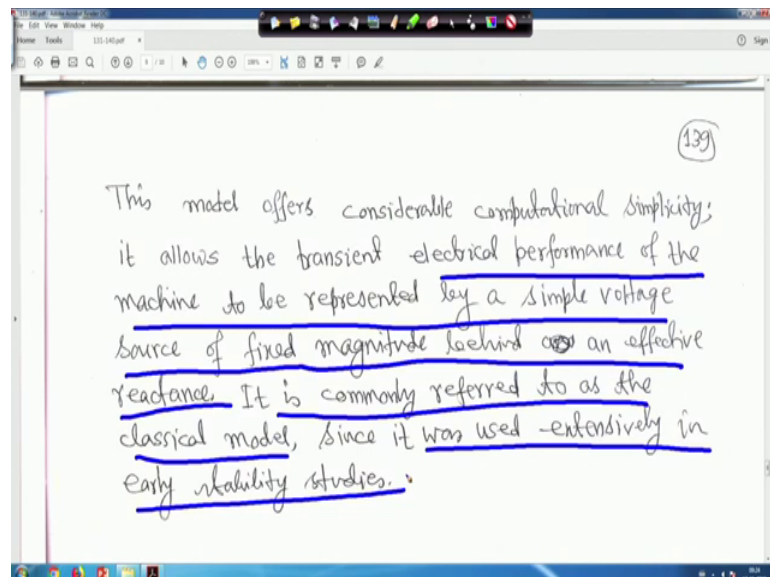 131-140.pdf - Adobe Acrobat Reader DC
File Edit View Window Help
Home Tools 131-140.pdf × Sign
9 / 10
139
This model offers considerable computational simplicity;
it allows the transient electrical performance of the
machine to be represented by a simple voltage
source of fixed magnitude behind an effective
reactance. It is commonly referred to as the
classical model, since it was used extensively in
early stability studies.